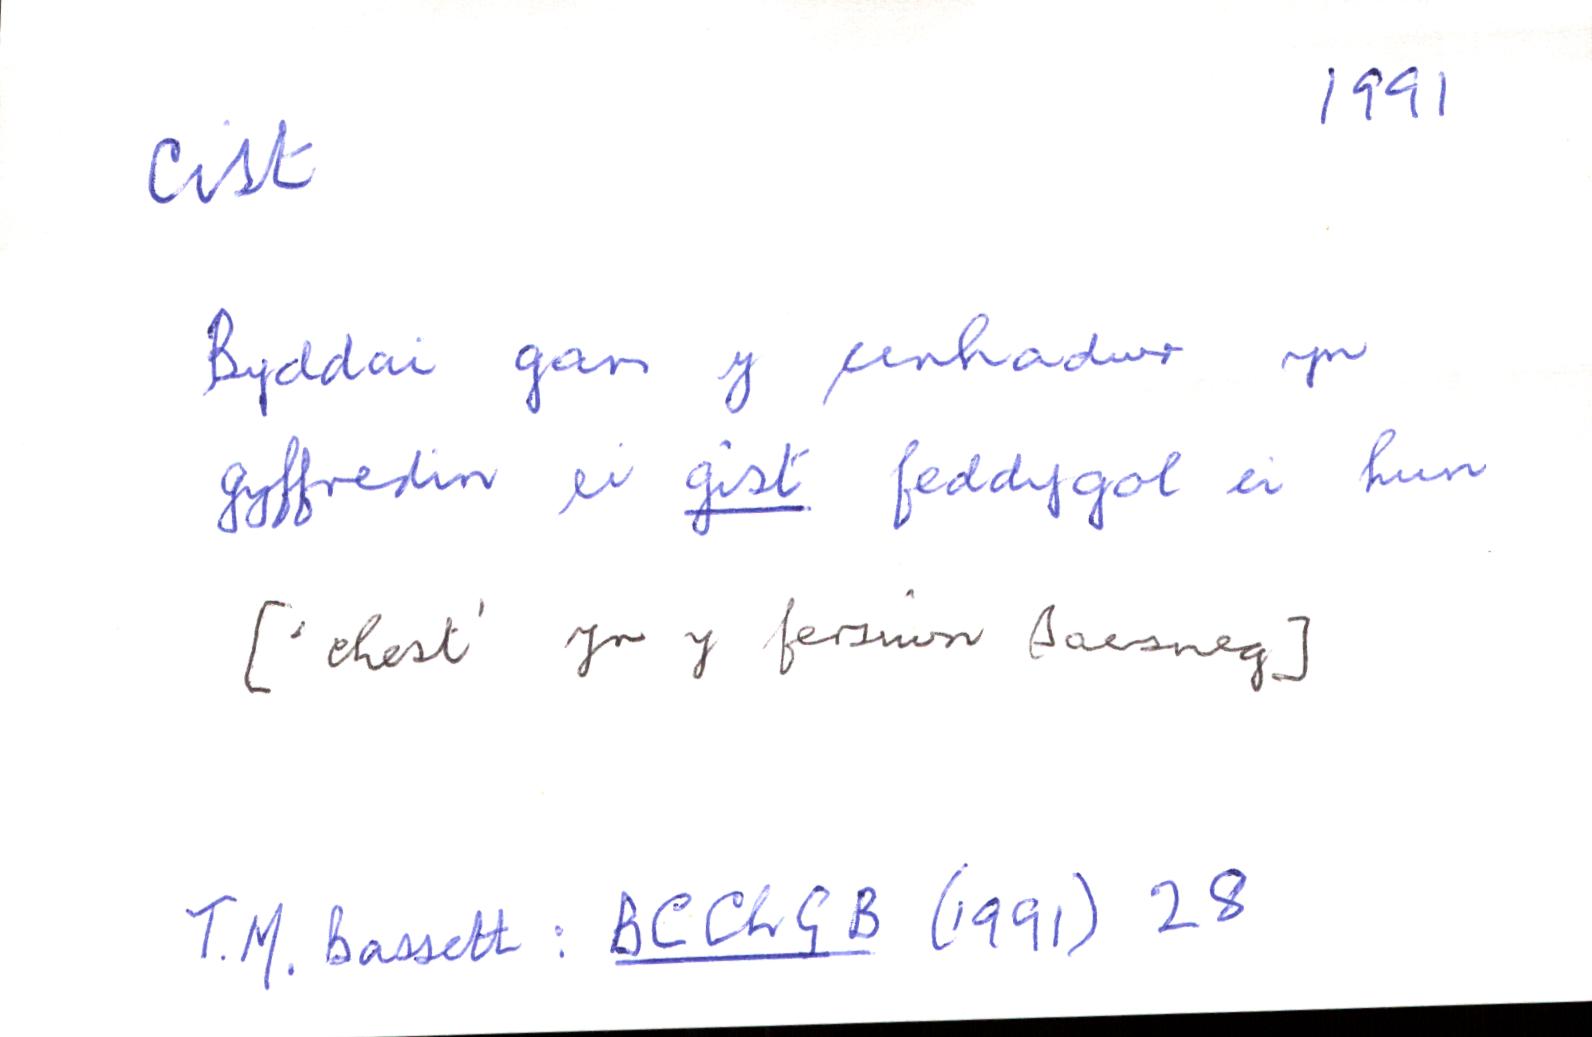 1991
Cist
Byddai gan y cenhadwr yn
gyffredin ei gist feddygol ei hun
['chest' yn y fersiwn Saesneg]
T.M. Bassett: BCChGB (1991) 28